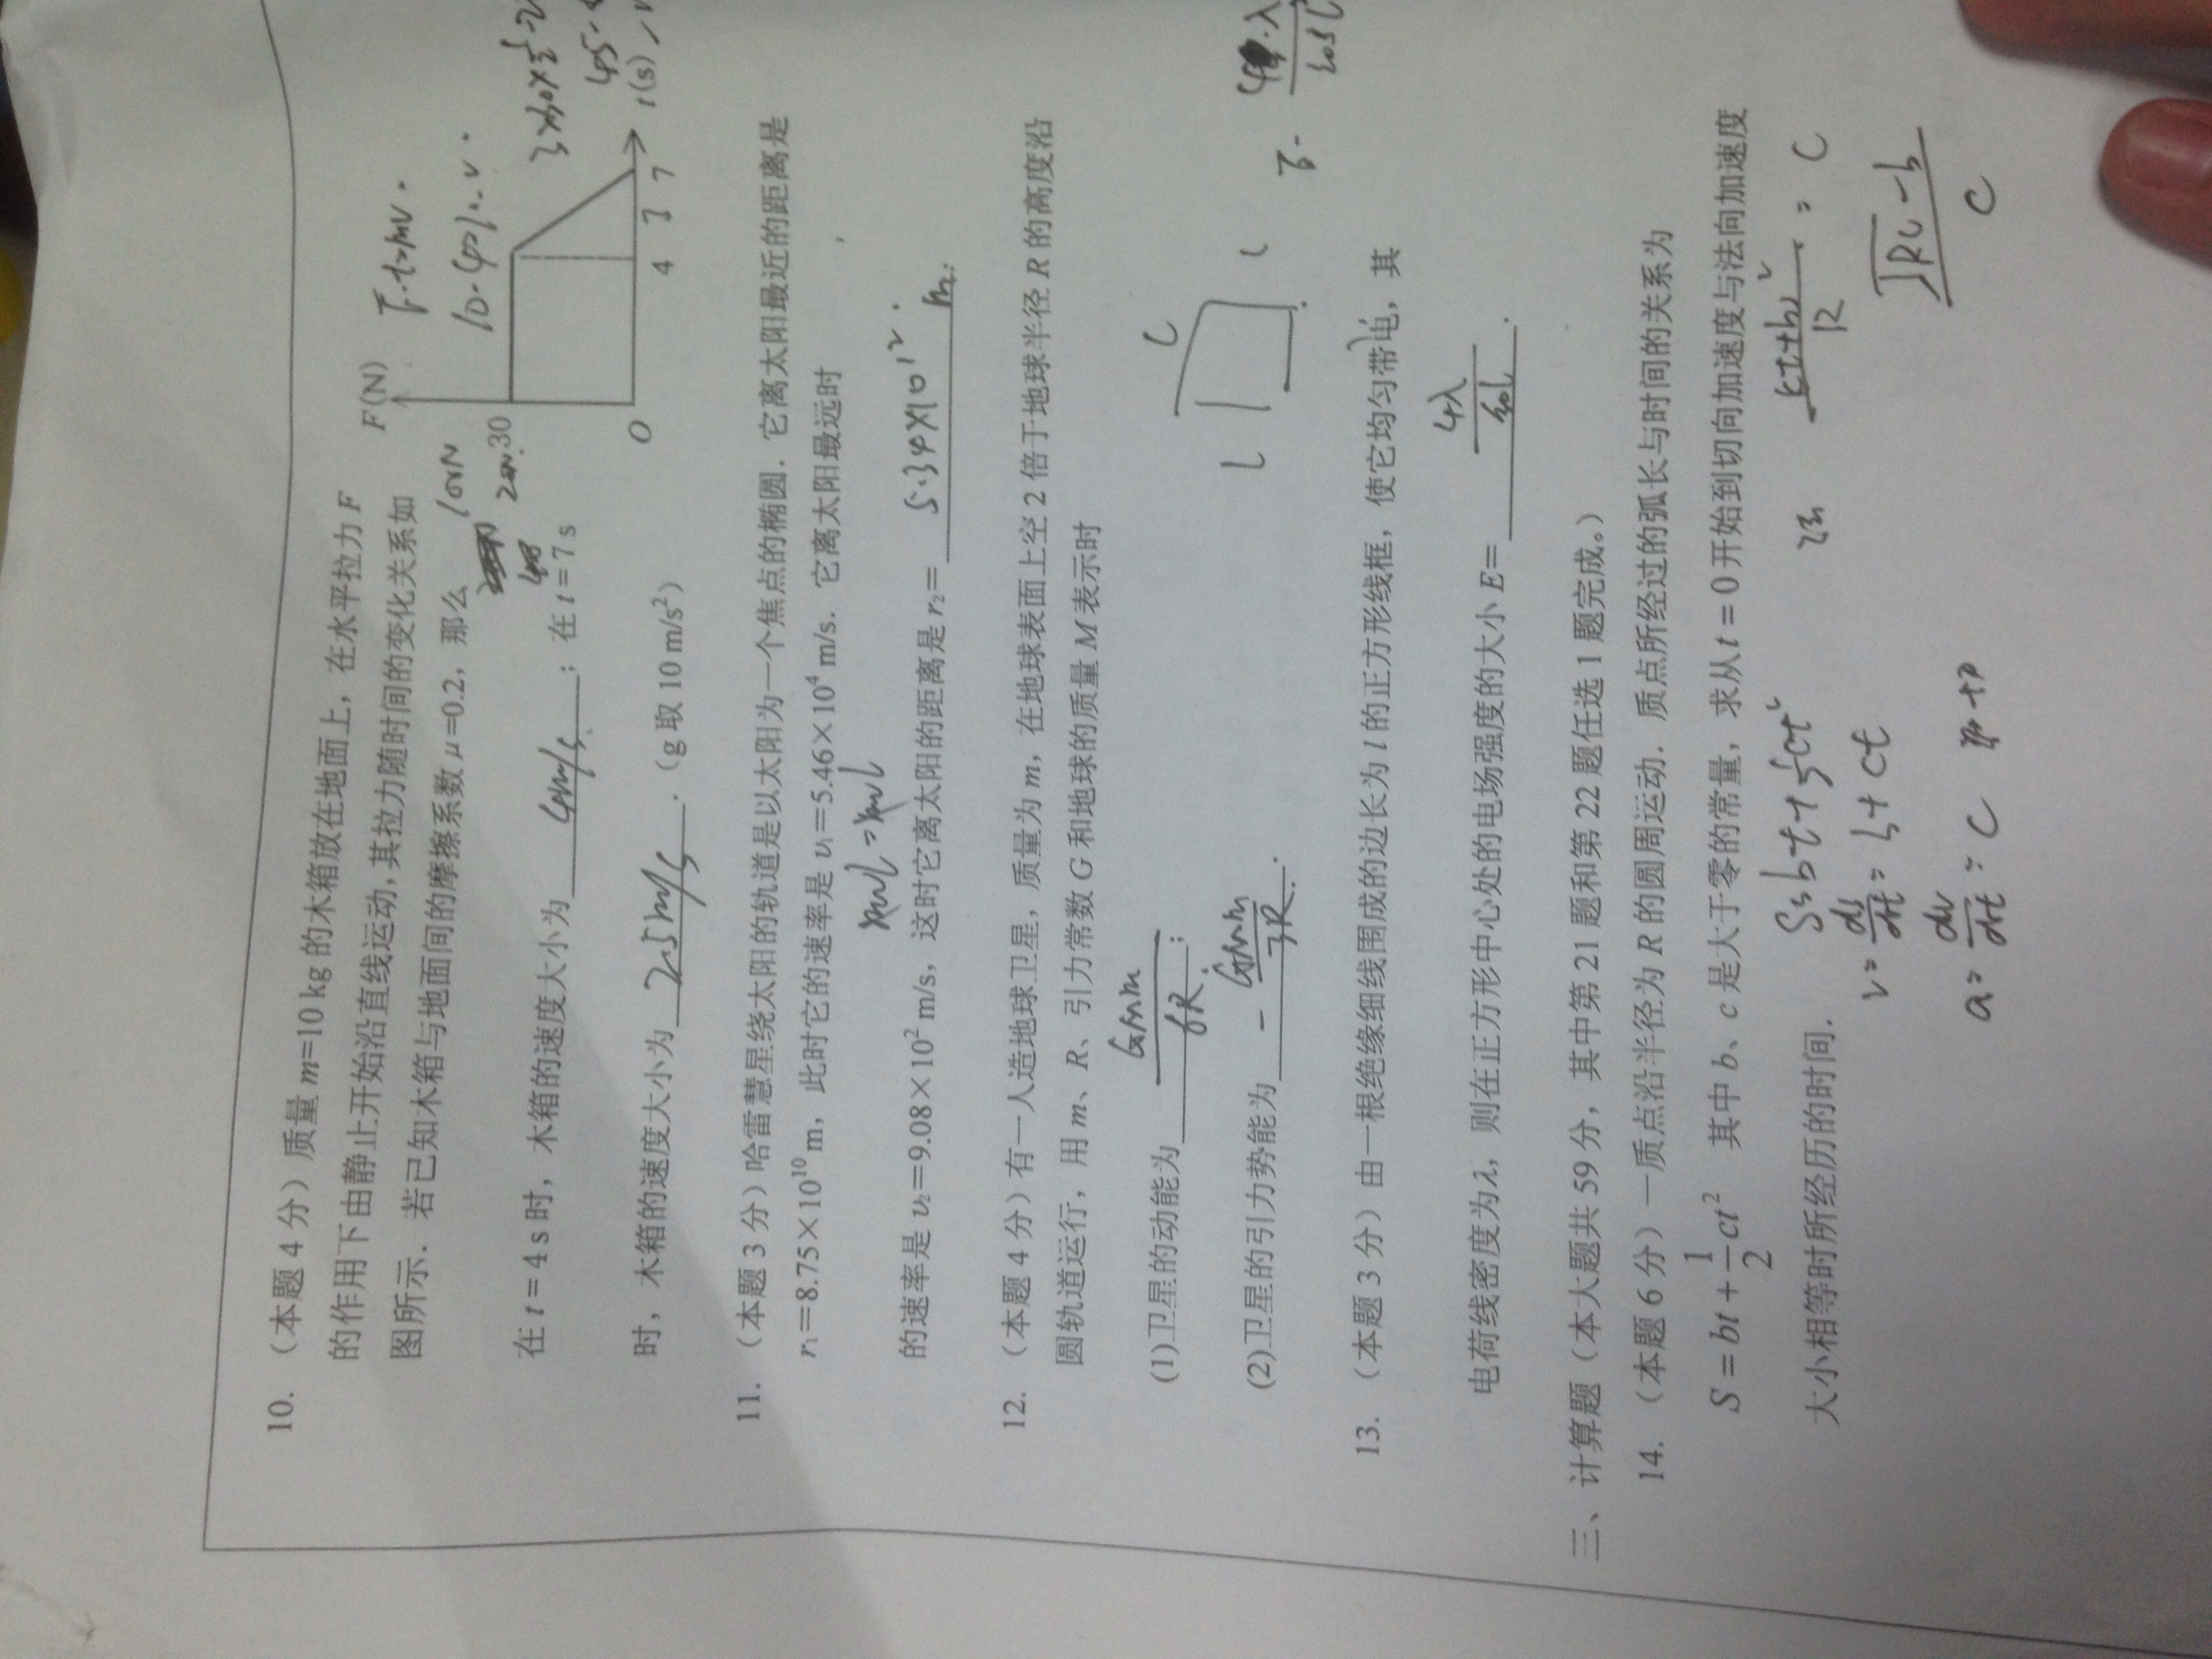 10. （本题 4 分）质量 m=10 kg 的木箱放在地面上，在水平拉力 F
的作用下由静止开始沿直线运动,其拉力随时间的变化关系如
图所示．若已知木箱与地面间的摩擦系数 μ=0.2，那么
F(N)
F·t=mv.
10·4=10·v.
20N
30
3×30×1/2=
45-
在 t = 4 s 时，木箱的速度大小为 4m/s ；在 t = 7 s
O
4 3 7
t(s)
时，木箱的速度大小为 2.5m/s ．（g 取 10 m/s²）
11. （本题 3 分）哈雷慧星绕太阳的轨道是以太阳为一个焦点的椭圆．它离太阳最近的距离是
r₁＝8.75×10¹⁰ m，此时它的速率是 υ₁＝5.46×10⁴ m/s．它离太阳最远时
的速率是 υ₂＝9.08×10² m/s，这时它离太阳的距离是 r₂＝ 5.34×10¹² m.
12. （本题 4 分）有一人造地球卫星，质量为 m，在地球表面上空 2 倍于地球半径 R 的高度沿
圆轨道运行，用 m、R、引力常数 G 和地球的质量 M 表示时
(1)卫星的动能为 GMm/6R ；
(2)卫星的引力势能为 -GMm/3R ．
13. （本题 3 分）由一根绝缘细线围成的边长为 l 的正方形线框，使它均匀带电，其
电荷线密度为λ，则在正方形中心处的电场强度的大小 E＝ 4λ/ε₀l ．
三、计算题（本大题共 59 分，其中第 21 题和第 22 题任选 1 题完成。）
14. （本题 6 分）一质点沿半径为 R 的圆周运动．质点所经过的弧长与时间的关系为
S = bt + 1/2 ct² 其中 b、c 是大于零的常量，求从 t = 0 开始到切向加速度与法向加速度
大小相等时所经历的时间．
S=bt+½ct²
(ct+b)²/R = C
v= ds/dt = b+ct
(√RC -b)/C
a= dv/dt = C